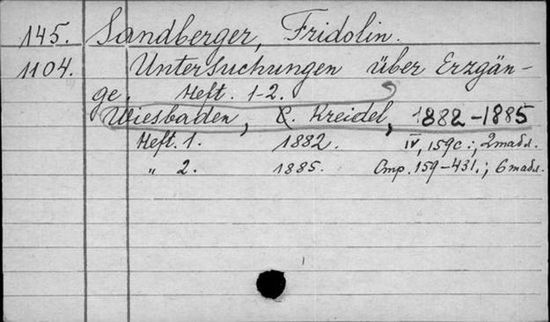 145. Sandberger, Fridolin.
1104. Untersuchungen über Erzgän-
ge. Heft. 1-2.
Wiesbaden, C. Kreidel, 1882-1885
Heft. 1. 1882. IV, 159 с.; 2 табл.
„ 2. 1885. Стр. 159-431.; 6 табл.